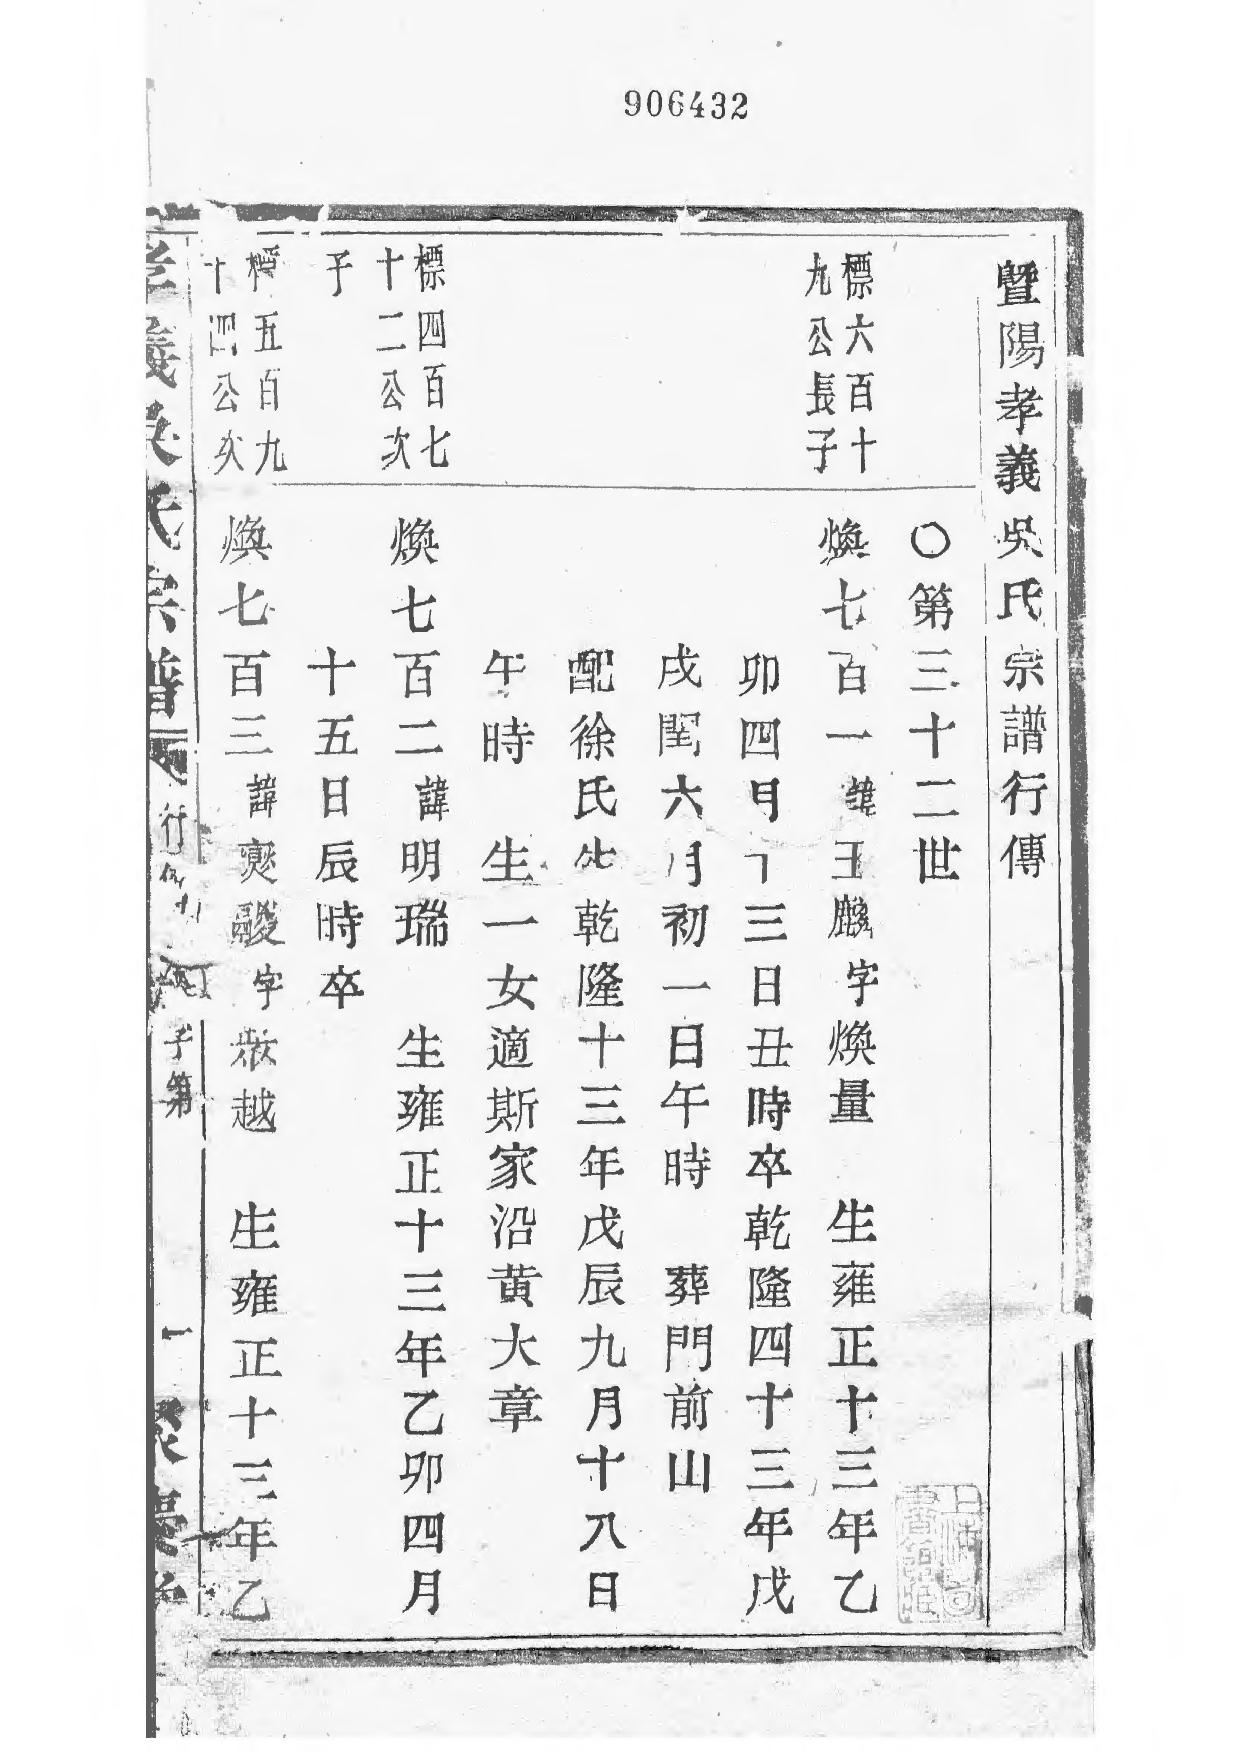 906432
暨陽孝義吳氏宗譜行傳
〇第三十二世
標六百十
九公長子
煥七百一諱玉麟字煥量　生雍正十三年乙
卯四月十三日丑時卒乾隆四十三年戊
戌閏六月初一日午時　葬門前山
配徐氏生乾隆十三年戊辰九月十八日
午時　生一女適斯家沿黃大章
標四百七
十二公次
子
煥七百二諱明瑞　生雍正十三年乙卯四月
十五日辰時卒
標五百九
十四公次
煥七百三諱字越　生雍正十三年乙
孝義吳氏宗譜
行
子第
一
聚慶堂